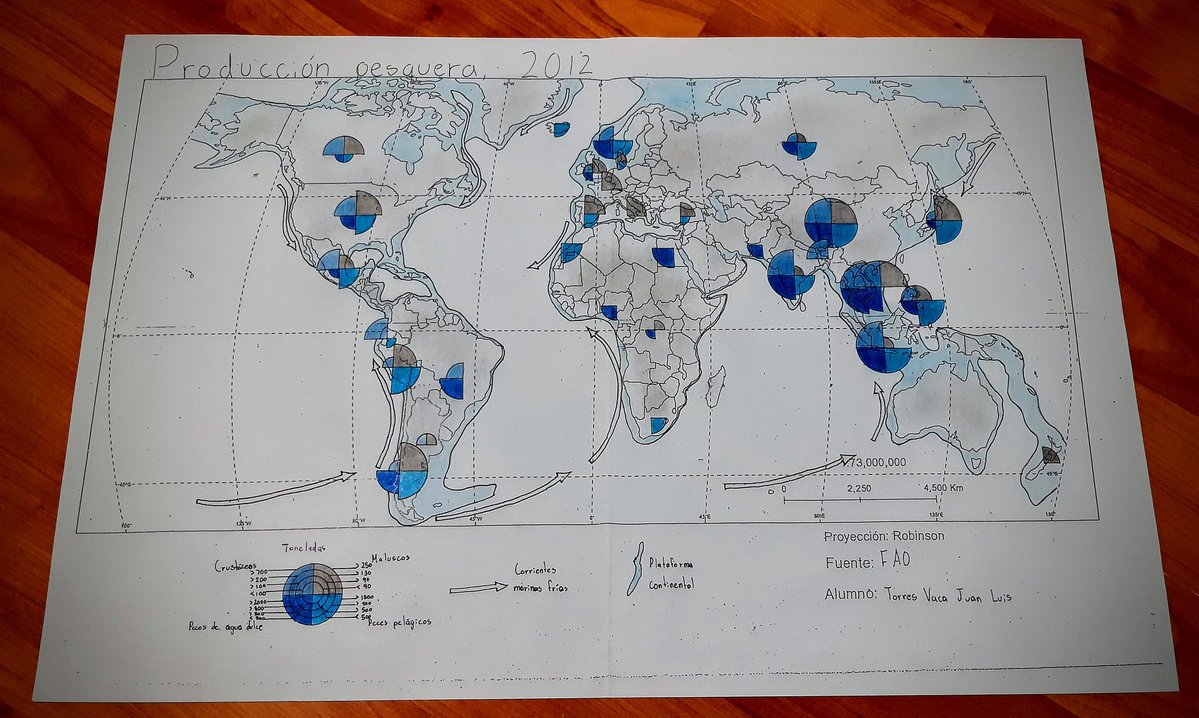 Producción pesquera, 2012
45°W
0°
45°S
180°
135°W
90°W
45°W
0°
45°E
135°E
180°
1:73,000,000
0 2,250 4,500 Km
Toneladas
Crustáceos
Moluscos
> 700
> 200
> 100
< 100
> 250
> 130
> 90
< 90
Peces de agua dulce
Peces pelágicos
Corrientes
marinas frías
Plataforma
Continental
Proyección: Robinson
Fuente: FAO
Alumno: Torres Vaca Juan Luis